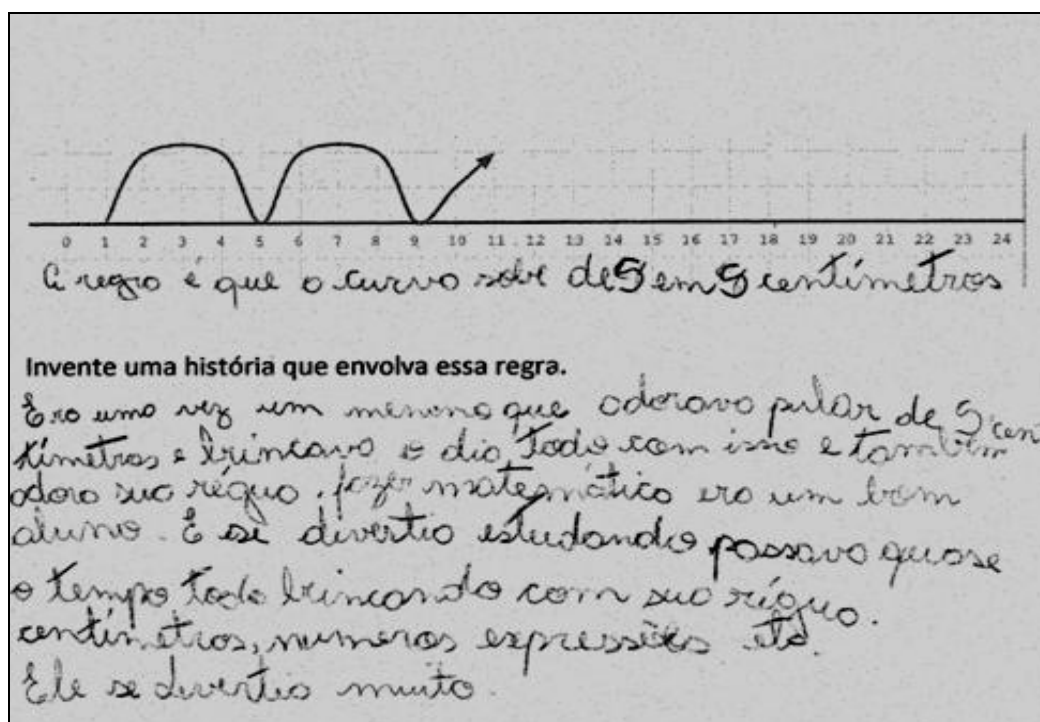 0 1 2 3 4 5 6 7 8 9 10 11 12 13 14 15 16 17 18 19 20 21 22 23 24
A regra é que a curva sobe de 5 em 5 centímetros
Invente uma história que envolva essa regra.
Era uma vez um menino que adorava pular de 5 cen
tímetros e brincava o dia todo com isso e também
adora sua régua. fazer matemática era um bom
aluno. E se divertia estudando passava quase
o tempo todo brincando com sua régua.
centímetros, numeros expressões etc.
Ele se divertia muito.